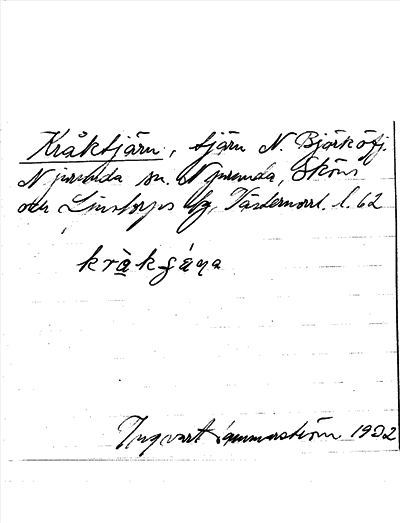 Kråktjärn, tjärn N. Björköfj.
Njurunda sn. Njurunda, Sköns
och Ljustorps tg, Västernorrl. l. 62
Ingvart 1932